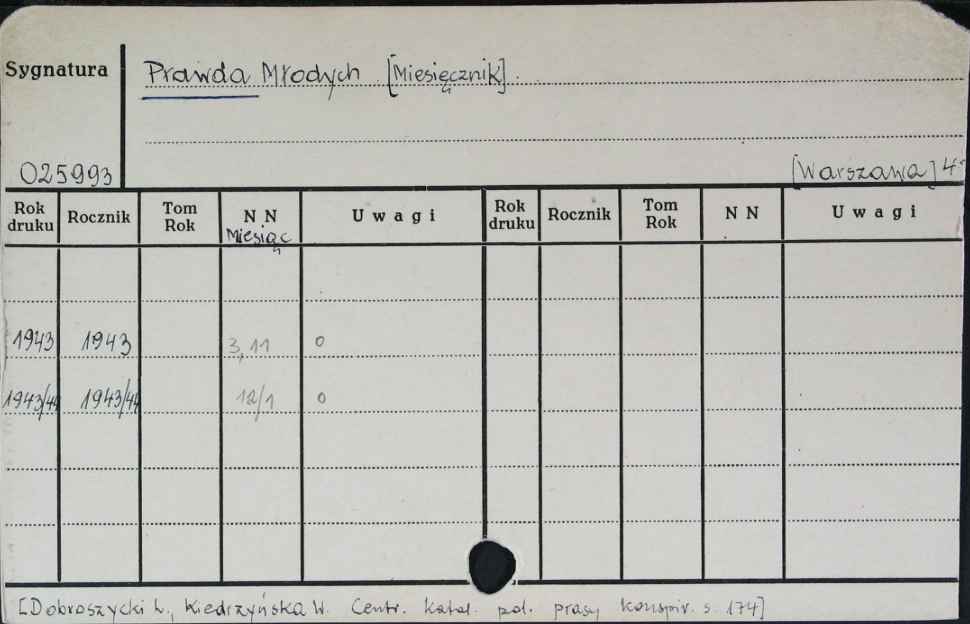 Sygnatura
Prawda Młodych [Miesięcznik]
025993
[Warszawa] 4°
Rok druku Rocznik Tom Rok N N Miesiąc Uwagi Rok druku Rocznik Tom Rok N N Uwagi
1943 1943 3, 11 o
1943/44 1943/44 12/1 o
[Dobroszycki L., Kiedrzyńska W. Centr. katal. pol. prasy konspir. s. 174]